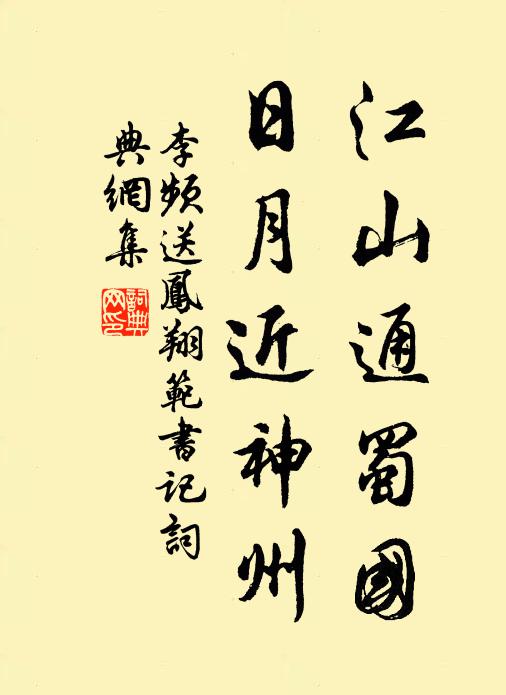 江山通蜀國
日月近神州
李頻送鳳翔範書記詞
典網集
詞典網印